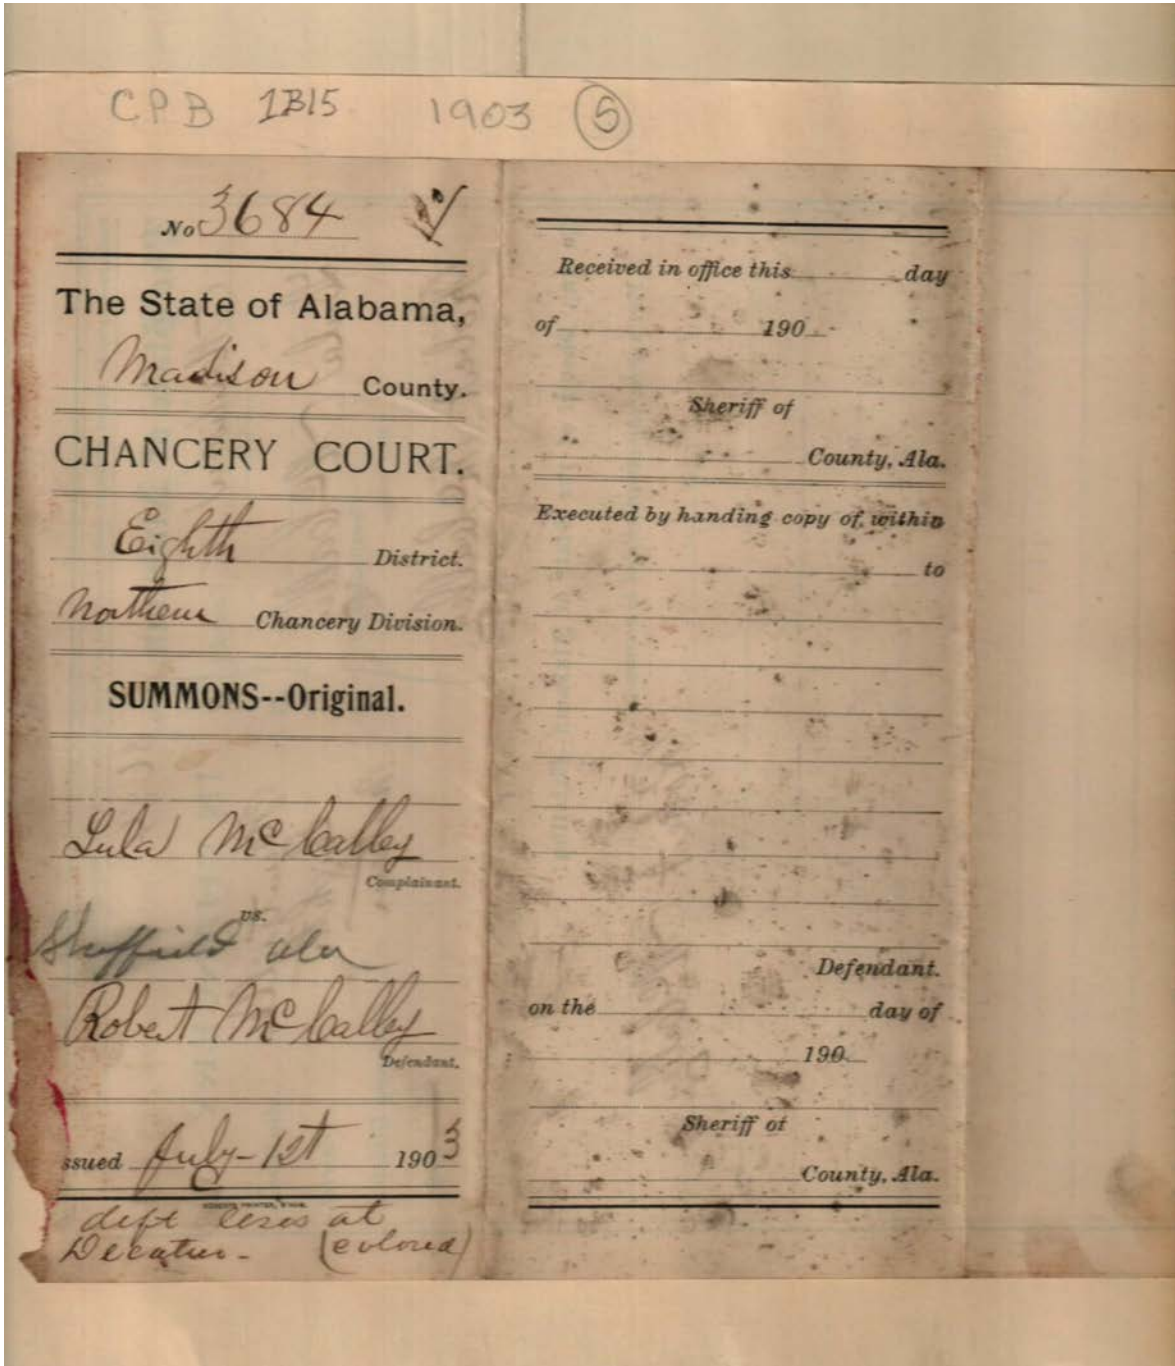 CPB 1B15 1903 5
No 3684
The State of Alabama,
Madison County.
CHANCERY COURT.
Eighth District.
Northern Chancery Division.
SUMMONS--Original.
Lula McCalley
Complainant.
vs.
Sheffield ala
Robert McCalley
Defendant.
ssued July-1st 1903
deft lives at
Decatur- (colored)
Received in office this day
of 190
Sheriff of
County, Ala.
Executed by handing copy of within
to
Defendant.
on the day of
190
Sheriff of
County, Ala.